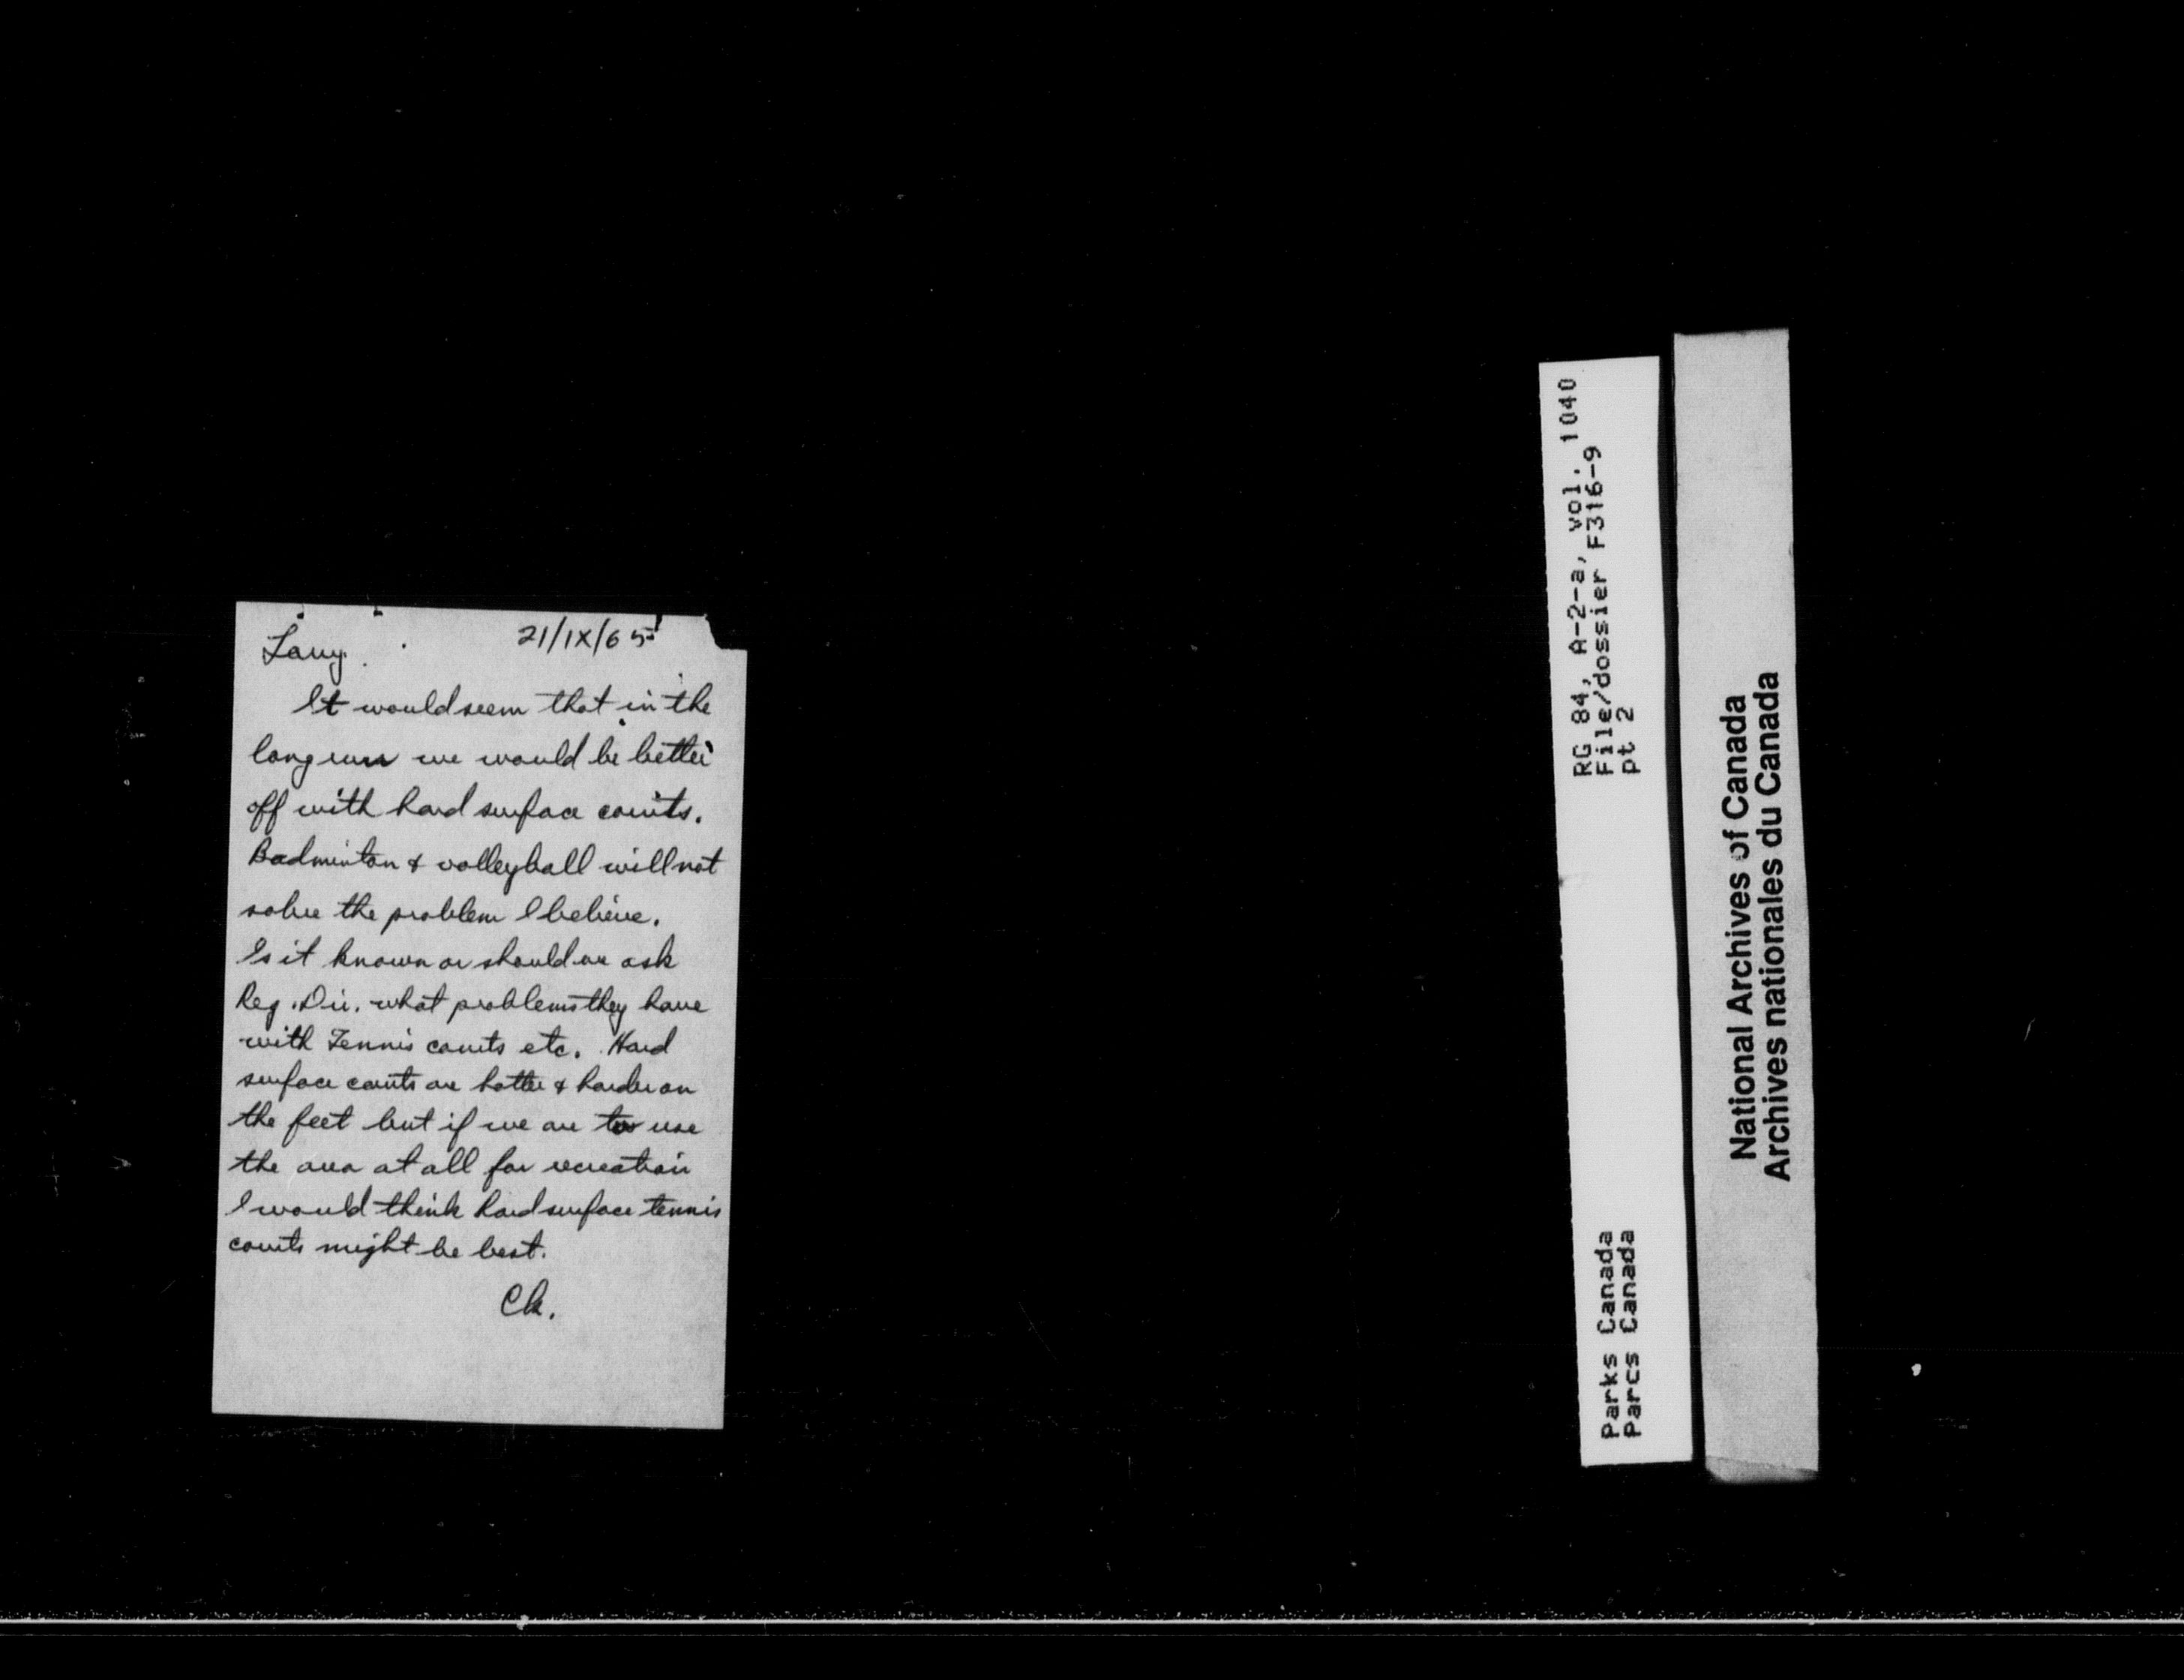 Larry. 21/IX/65
It would seem that in the
long run we would be better
off with hard surface courts.
Badminton & volleyball will not
solve the problem I believe.
Is it known or should we ask
Reg. Dir. what problems they have
with Tennis courts etc. Hard
surface courts are hotter & harder on
the feet but if we are to use
the area at all for recreation
I would think hard surface tennis
courts might be best.
RG 84, A-2-a, vol. 1040
File/dossier F316-9
pt 2
Parks Canada
Parcs Canada
National Archives of Canada
Archives nationales du Canada